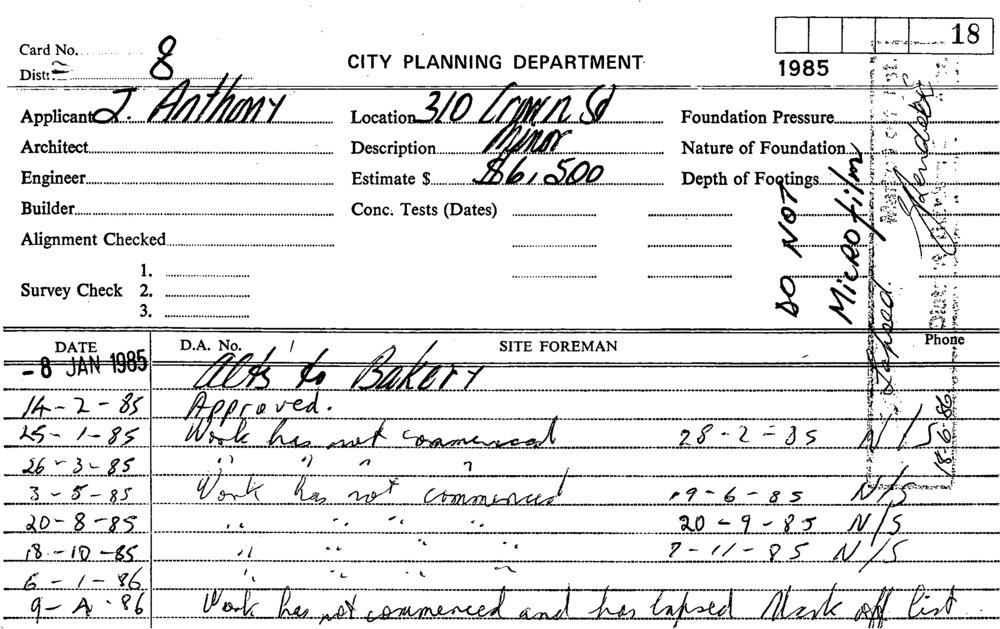 18
Card No. 8
Dist.
CITY PLANNING DEPARTMENT
1985
Applicant J. Anthony
Location 310 Crown St
Foundation Pressure
Architect
Description Minor
Nature of Foundation
Engineer
Estimate $ $6,500
Depth of Footings
Builder
Conc. Tests (Dates)
Alignment Checked
Survey Check
1.
2.
3.
DO NOT
Microfilm
Lapsed.
18-6-86
DATE D.A. No. SITE FOREMAN Phone
- 8 JAN 1985 Alts to Bakery
14-2-85 Approved.
25-1-85 Work has not commenced 28-2-85 N/S
26-3-85 " " " "
3-5-85 Work has not commenced 19-6-85 N/S
20-8-85 " " " " 20-9-85 N/S
18-10-85 " " " " 7-11-85 N/S
6-1-86 " " " "
9-A-86 Work has not commenced and has lapsed Mark off list